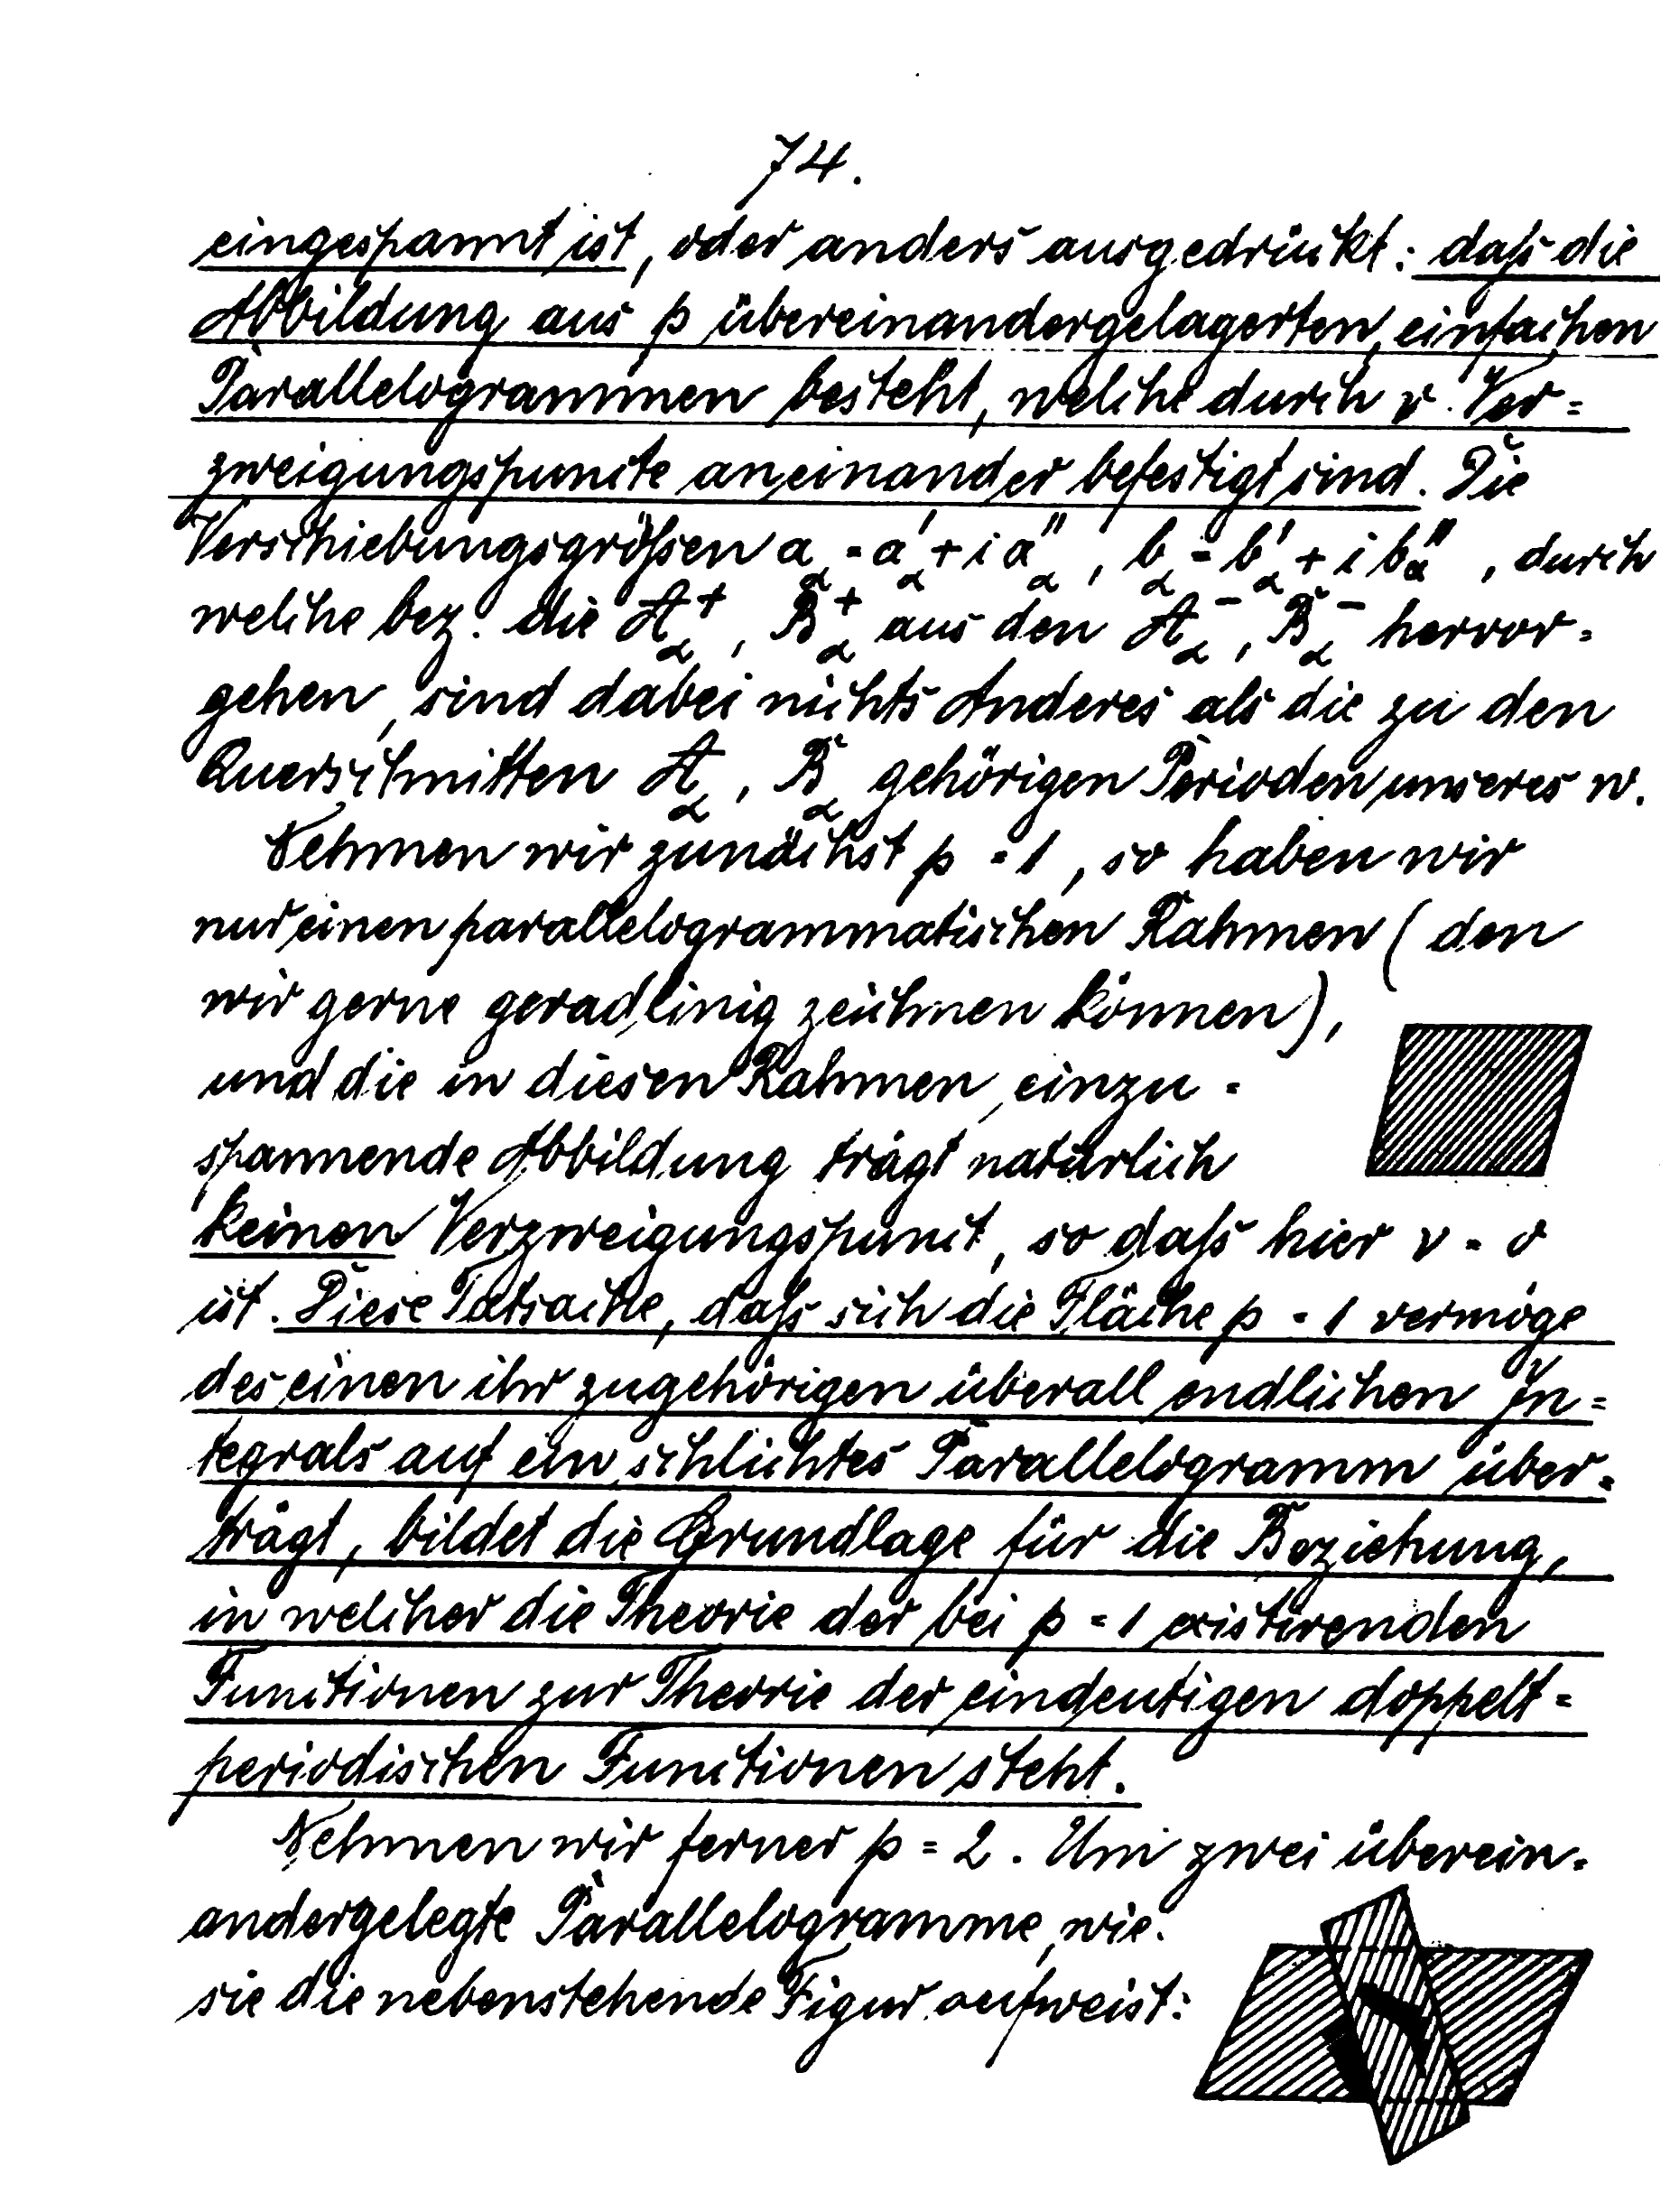 74.
eingespannt ist, oder anders ausgedrückt: daß die
Abbildung aus p übereinandergelagerten, einfachen
Parallelogrammen besteht, welche durch ν Ver=
zweigungspuncte aneinander befestigt sind. Die
Verschiebungsgrößen a_α = a'_α + i a''_α, b_α = b'_α + i b''_α, durch
welche bez. die A_α^+, B_α^+ aus den A_α^-, B_α^- hervor=
gehen, sind dabei nichts Anderes als die zu den
Querschnitten A_α, B_α gehörigen Perioden unseres w.
Nehmen wir zunächst p = 1, so haben wir
nur einen parallelogrammatischen Rahmen (den
wir gerne geradlinig zeichnen können),
und die in diesen Rahmen einzu=
spannende Abbildung trägt natürlich
keinen Verzweigungspunct, so daß hier ν = 0
ist. Diese Tatsache, daß sich die Fläche p = 1 vermöge
des einen ihr zugehörigen überall endlichen In=
tegrals auf ein schlichtes Parallelogramm über=
trägt, bildet die Grundlage für die Beziehung,
in welcher die Theorie der bei p = 1 existirenden
Functionen zur Theorie der eindeutigen doppelt=
periodischen Functionen steht.
Nehmen wir ferner p = 2. Um zwei überein=
andergelegte Parallelogramme, wie
sie die nebenstehende Figur aufweist: